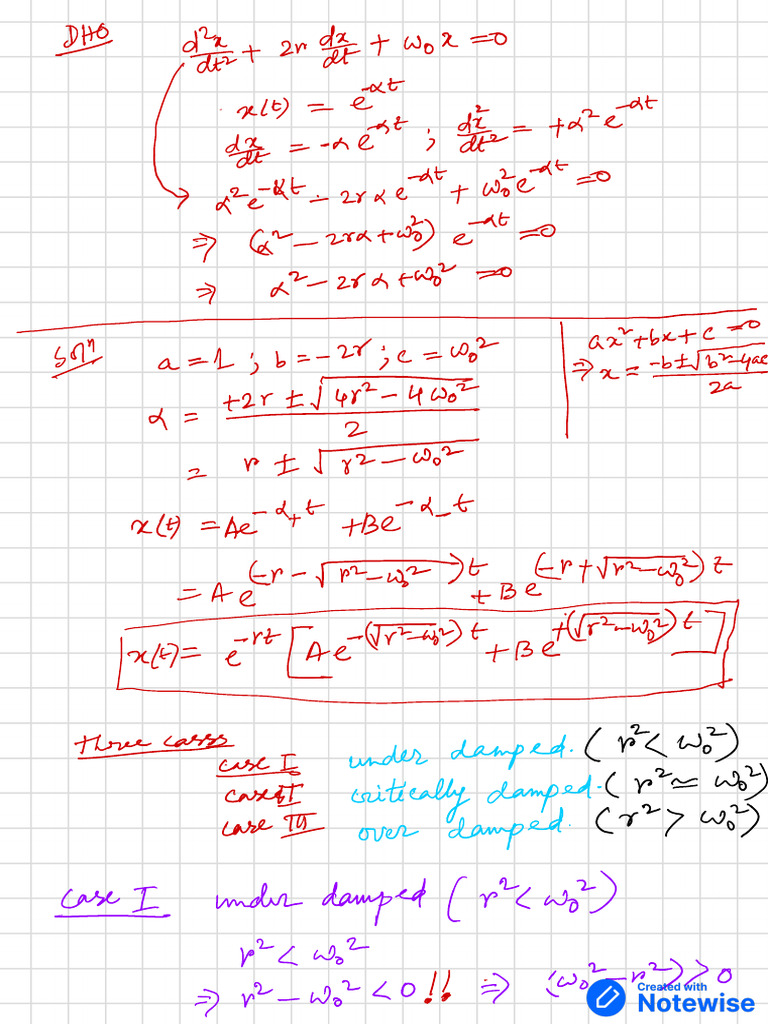 DHO d²x/dt² + 2r dx/dt + ω₀ x = 0
x(t) = e^(-αt)
dx/dt = -α e^(-αt) ; d²x/dt² = +α² e^(-αt)
α² e^(-αt) - 2rα e^(-αt) + ω₀² e^(-αt) = 0
⇒ (α² - 2rα + ω₀²) e^(-αt) = 0
⇒ α² - 2rα + ω₀² = 0
Solⁿ a = 1 ; b = -2r ; c = ω₀²
ax² + bx + c = 0
⇒ x = (-b ± √(b² - 4ac))/2a
α = (+2r ± √(4r² - 4ω₀²))/2
= r ± √(r² - ω₀²)
x(t) = Ae^(-α₊t) + Be^(-α₋t)
= A e^(-r - √(r² - ω₀²))t + B e^(-r + √(r² - ω₀²))t
x(t) = e^(-rt) [A e^(-(√(r² - ω₀²))t) + B e^(+(√(r² - ω₀²))t)]
Three cases
case I under damped. (r² < ω₀²)
case II critically damped. (r² ≃ ω₀²)
case III over damped. (r² > ω₀²)
case I under damped (r² < ω₀²)
r² < ω₀²
⇒ r² - ω₀² < 0 !! ⇒ (ω₀² - r²) > 0
Created with
Notewise